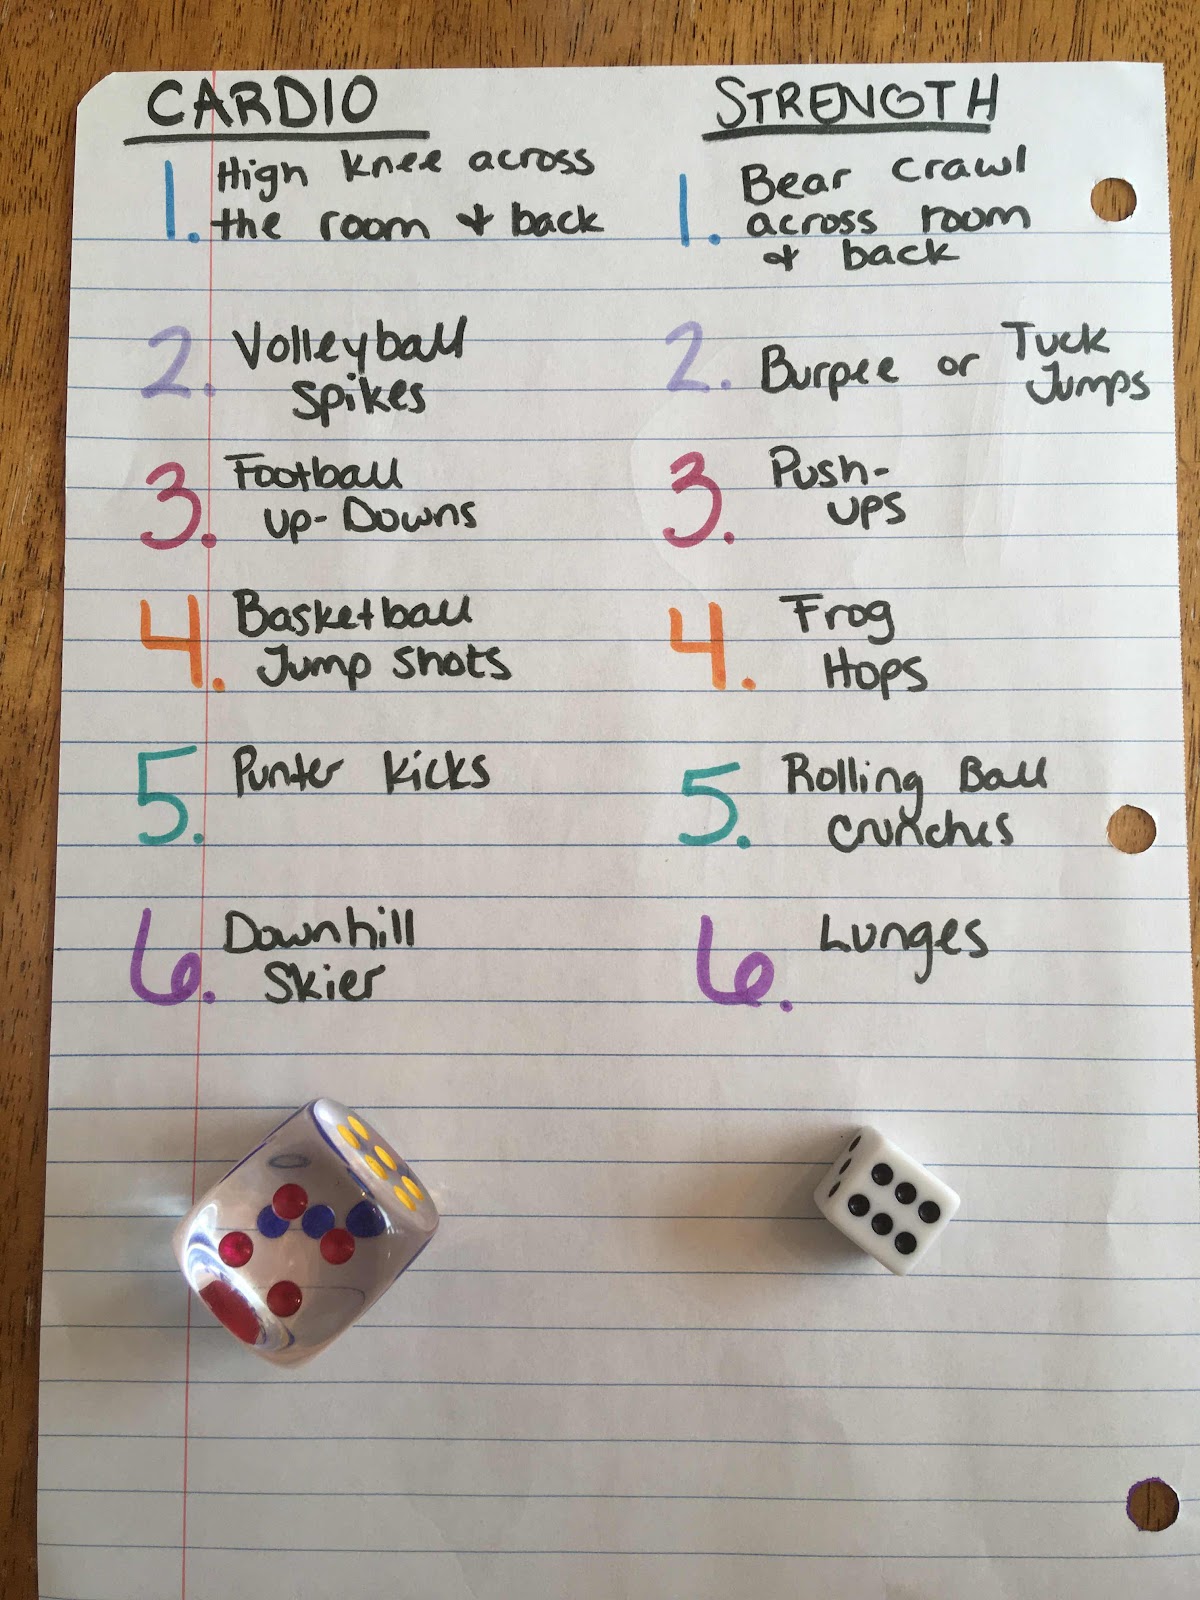 CARDIO
1. High knee across
the room & back
2. Volleyball
Spikes
3. Football
up-Downs
4. Basketball
Jump shots
5. Punter kicks
6. Downhill
Skier
STRENGTH
1. Bear crawl
across room
& back
2. Burpee or Tuck
Jumps
3. Push-
ups
4. Frog
Hops
5. Rolling Ball
crunches
6. Lunges